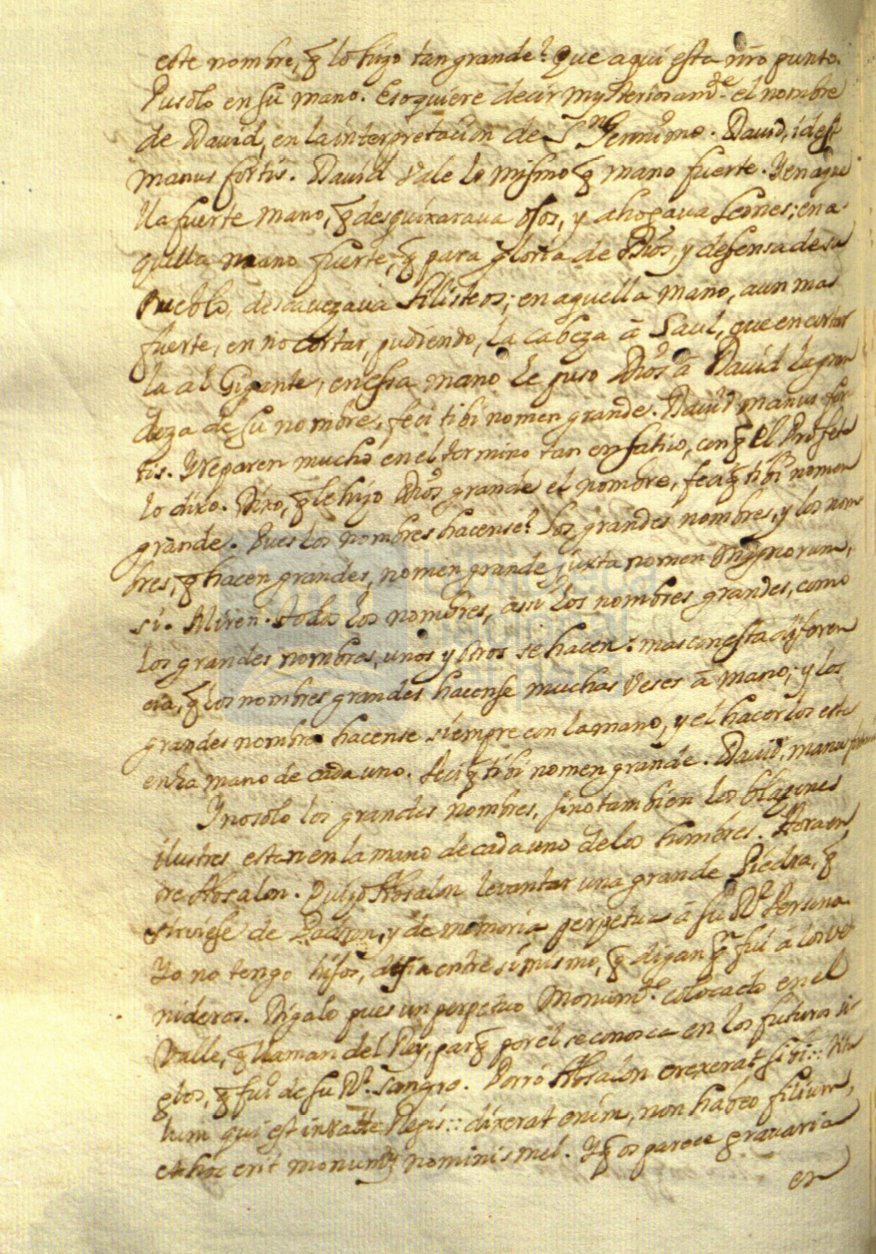 este nombre, q̃ lo hizo tan grande? Que aqui esta nr̃o punto.
Pusolo en su mano. Eso quiere decir mysteriosamte. el nombre
de David, en la interpretacion de Sn. Geronimo. David, idest
manus fortis. David vale lo mismo q̃ mano fuerte. Y en aque
lla fuerte mano, q̃ desquixarava osos, y ahogava Leones; en a-
quella mano fuerte, q̃ para gloria de Dios, y defensa de su
Pueblo, descavezava filisteos; en aquella mano, aun mas
fuerte, en no cortar, pudiendo, la cabeza â Saul, que en cortar
la al Gigante, en essa mano le puso Dios â David la gran
deza de su nombre, feci tibi nomen grande. David manus for
tis. Y reparen mucho en el termino tan enfatico, con q̃ el Profeta
lo dixo. Dixo, q̃ le hizo Dios grande el nombre, feciq̃ tibi nomen
grande. Pues los nombres hacense? Los grandes nombres, y los nom
bres, q̃ hacen grandes, nomen grande juxta nomen magnorum,
si. Miren. todos los nombres, assi los nombres grandes, como
los grandes nombres, unos y otros se hacen: mas con esta diferen
cia, q̃ los nombres grandes hacense muchas veses â mano; y los
grandes nombres hacense siempre con la mano, y el hacerlos esta
en la mano de cada uno. feciq̃ tibi nomen grande. David, manus
Y no solo los grandes nombres, sino tambien los blasones
ilustres estan en la mano de cada uno de los hombres.
Absalon. Quizo Absalon levantar una grande Piedra, q̃
sirviesse de Padron, y de memoria perpetua â su Rl. Persona.
Yo no tengo hijos, desia entre si mismo, q̃ digan q̃ fui â los ve
nideros. Digalo pues un perpetuo Monumto. colocado en el
Valle, q̃ llaman del Rey, para q̃ por el se conosca en los futuros si
glos, q̃ fui de su Rl. Sangre. Porrò Absalon erexerat sibi:: titu
lum qui est in valle Regis:: dixerat enim, non habeo filium,
et hoc erit monumt. nominis mei. Y q̃ os parece gravaria
en